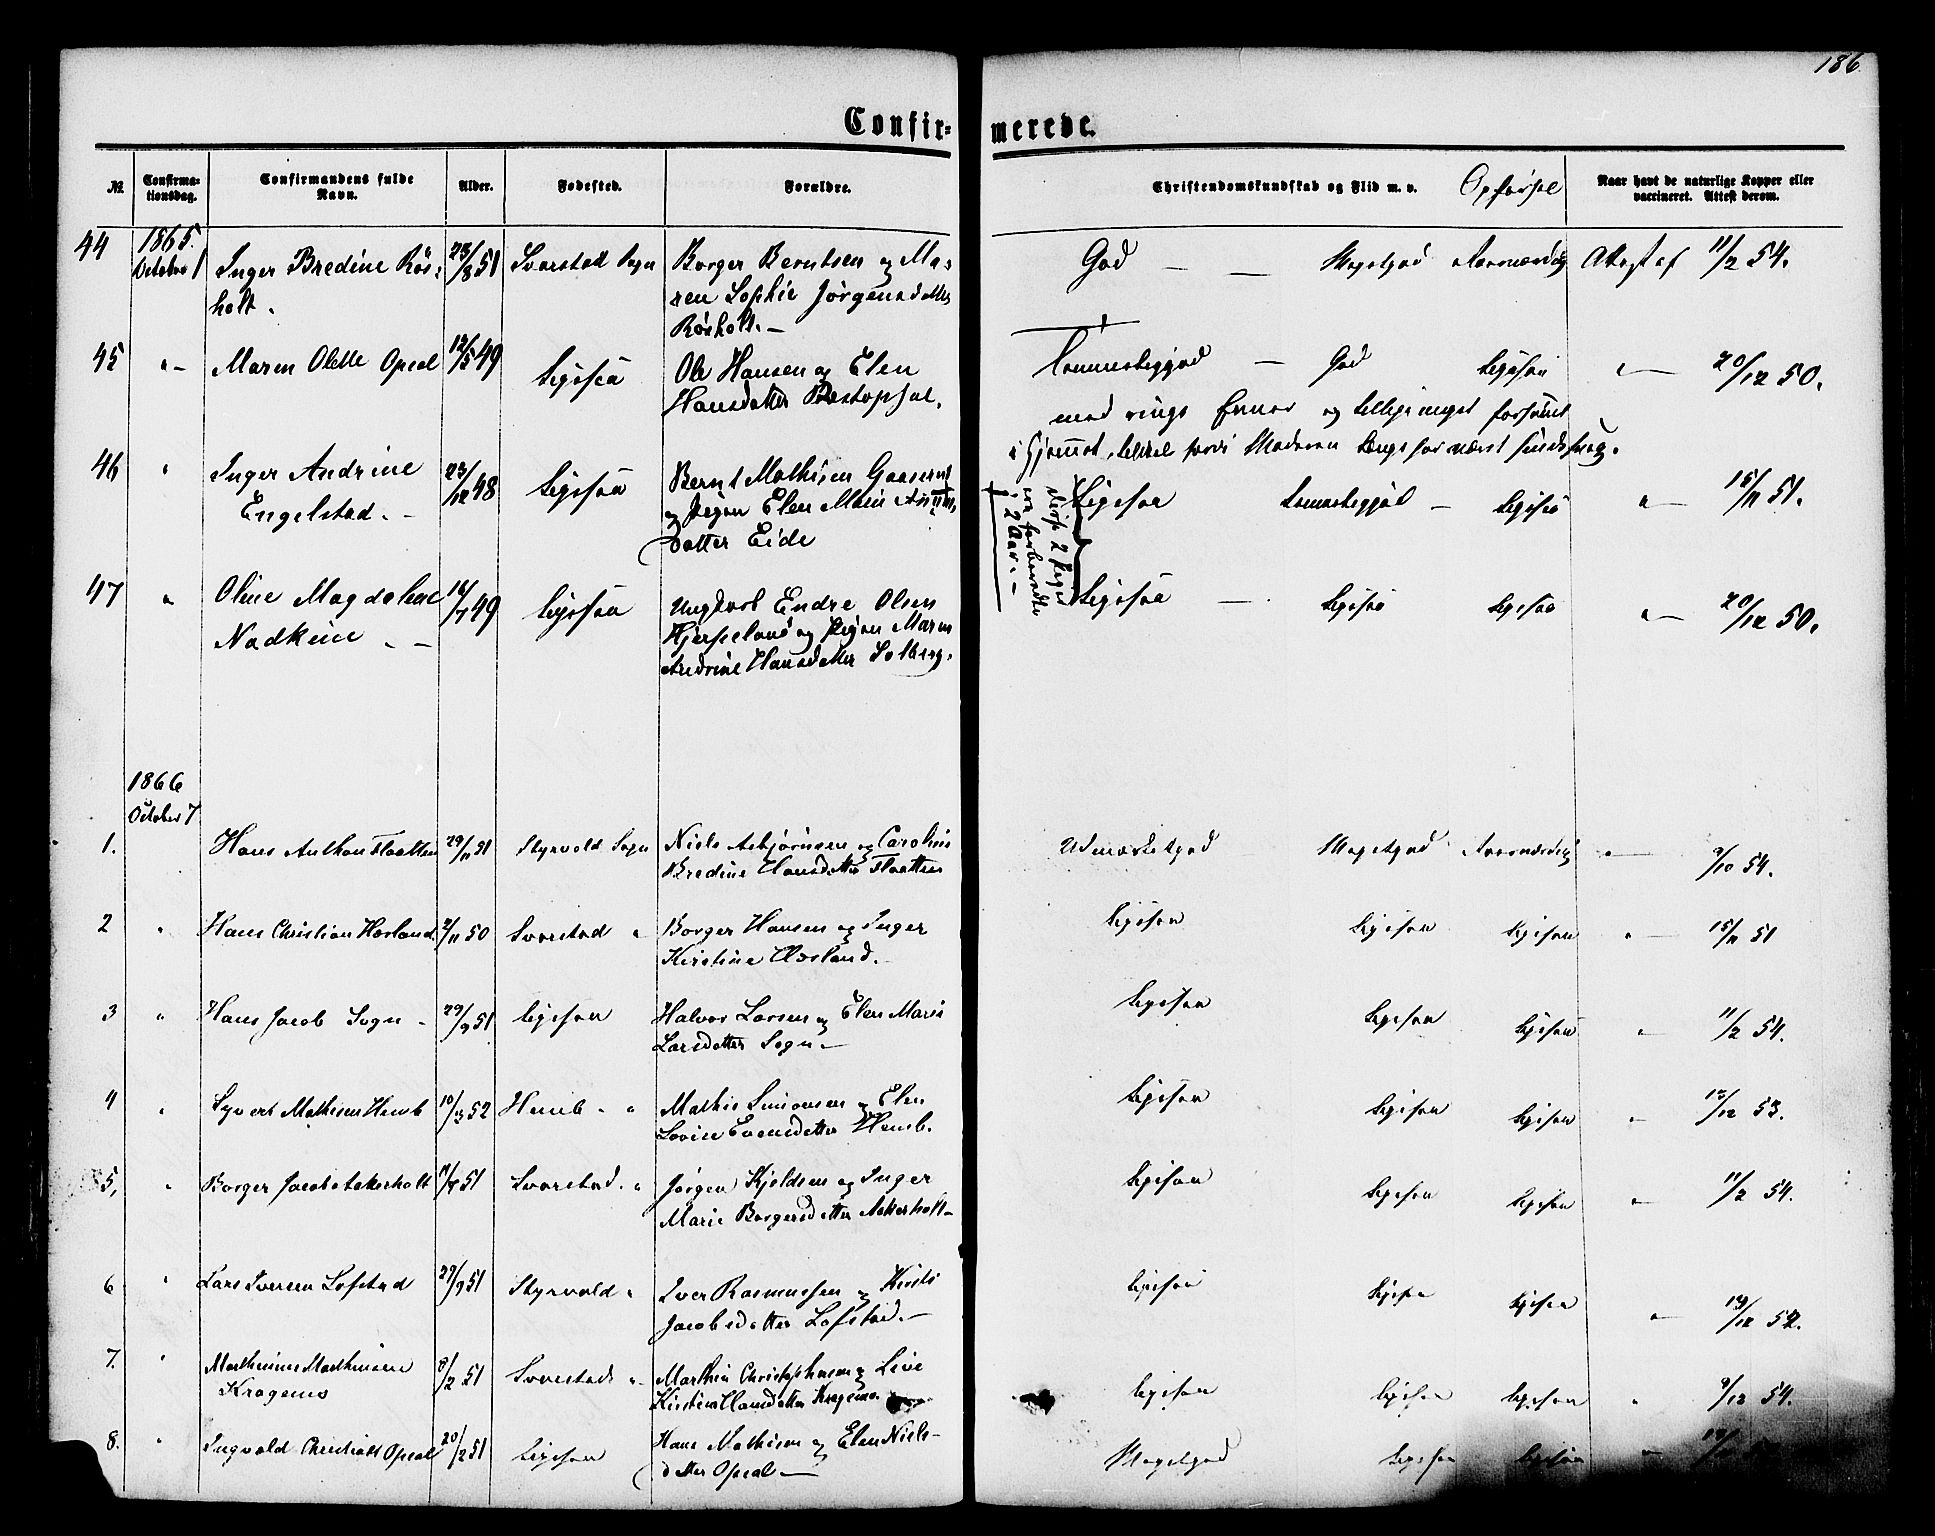 186.
Confir- merede.
No. Confirma-tionsdag. Confirmandens fulde Navn. Alder. Fødested. Forældre. Christendomskundskab og Flid m. v. Opførsel Naar havt de naturlige Kopper eller vaccineret. Attest derom.
1865.
44 October 1 Inger Bredine Rös- 23/8 51 Svarstad Sogn Borger Berntsen og Ma- God — — Megetgod Attest af 11/2 54.
holt. ren Sophie Jørgensdatter
Rösholt. —
45 " — Maren Olette Opsal 12/5 49 Ligesaa Ole Hansen og Elen Temmeliggod — God Ligesaa " — 20/12 50.
Hansdatter
med ringe Evner og
i Hjemmet,
46 " Inger Andrine 23/12 48 Ligesaa Bernt Mathisen Ligesaa Temmeliggod — Ligesaa " — 15/11 51.
Engelstad. — og Pigen Elen
datter Eide
disse 2 Piger
ere forberedte
i 2 Aar. —
47 " Oline Magdalene 49 Ligesaa Ungkarl Endre Olsen Ligesaa — Ligesaa Ligesaa " — 20/12 50.
og Pigen Maren
Andrine Hansdatter Solberg.
1866
October 7
1. Hans Anthon Flaatten 29/11 51 Styrvold Sogn Niels Asbjørnsen og Caroline Udmærketgod Megetgod " — 9/10 54.
Bredine Hansdatter Flaatten
2 " Hans Christian Hæsland 2/11 50 Svarstad " Borger Hansen og Inger Ligesaa Ligesaa Ligesaa " — 15/11 51
Kirstine Hæsland. —
3 " Hans Jacob Sogn — 29/9 51 Ligesaa Halvor Larsen og Elen Marie Ligesaa Ligesaa Ligesaa " — 11/2 54.
Larsdatter Sogn —
4 " Syvert Mathisen Hemb 10/3 52 Hemb — " Mathis Simonsen og Elen Ligesaa Ligesaa Ligesaa " — 12/12 53.
Lovise Evensdatter Hemb.
5, " Borger Jacob Aakerholt 51 Svarstad. " Jørgen Kjeldsen og Inger Ligesaa Ligesaa Ligesaa " — 11/2 54.
Marie Borgersdatter Aakerholt —
6 " Lars Iversen Lofstad 27/9 51 Styrvold " Iver Rasmussen og Kirsti Ligesaa Ligesaa Ligesaa " — 52.
Jacobsdatter Lofstad. —
7. " Mathinius Mathiesen 8/2 51 Svarstad " Mathis Christophersen og Live Ligesaa Ligesaa Ligesaa " 9/12 54.
Kragenes Kirstine Hansdatter Kragenes
8. " Ingvald Christian Opsal 20/2 51 Ligesaa Hans Mathisen og Elen Niels- Megetgod Ligesaa Ligesaa " —
datter Opsal —